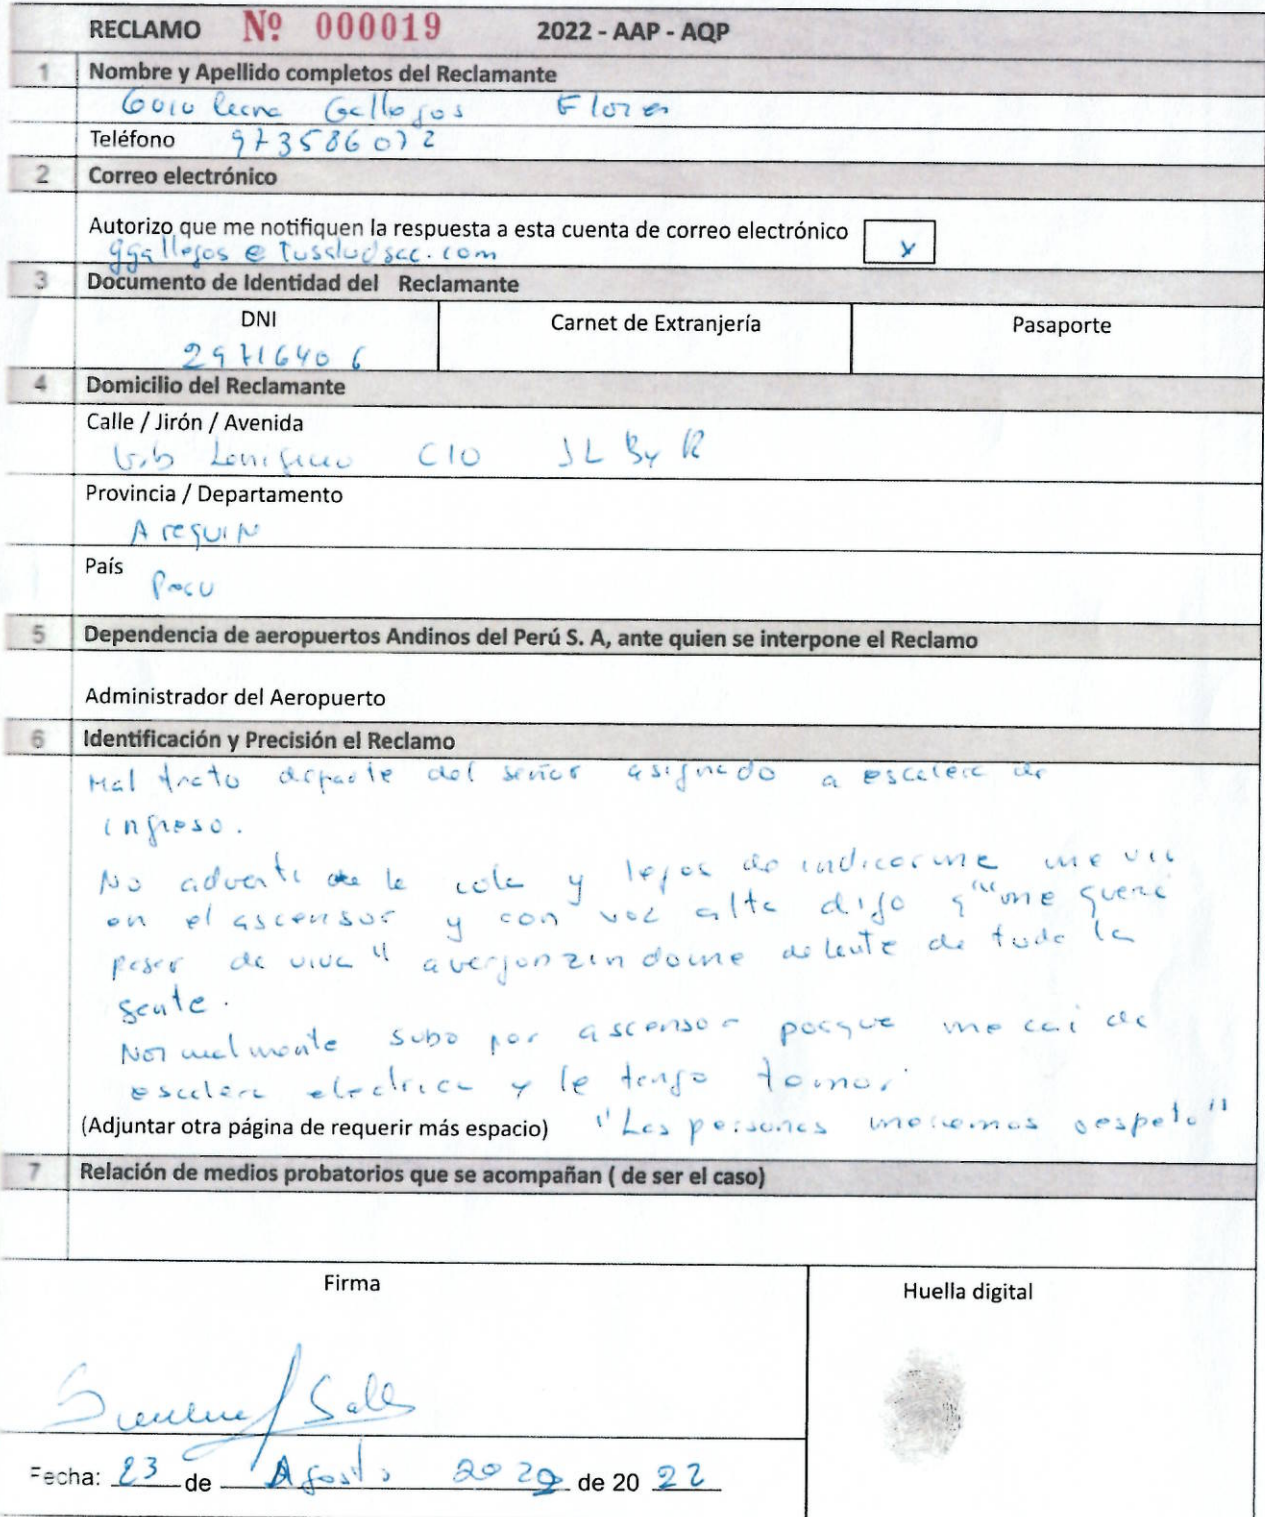 RECLAMO Nº 000019 2022 - AAP - AQP
1 Nombre y Apellido completos del Reclamante
Gallegos Flores
Teléfono 973586072
2 Correo electrónico
Autorizo que me notifiquen la respuesta a esta cuenta de correo electrónico x
ggallegos@tusaludsac.com
3 Documento de Identidad del Reclamante
DNI Carnet de Extranjería Pasaporte
29716406
4 Domicilio del Reclamante
Calle / Jirón / Avenida
Urb C10 JL By R
Provincia / Departamento
Arequipa
País
Peru
5 Dependencia de aeropuertos Andinos del Perú S. A, ante quien se interpone el Reclamo
Administrador del Aeropuerto
6 Identificación y Precisión el Reclamo
Mal trato departe del señor asignado a escalera de
ingreso.
No adverti de la cola y lejos de indicarme me vio
en el ascensor y con voz alta dijo q "me queria
pasar de viva" avergonzandome delante de toda la
gente.
Normalmente subo por ascensor porque me cai de
escalera electrica y le tengo temor.
(Adjuntar otra página de requerir más espacio) "Las personas merecemos respeto"
7 Relación de medios probatorios que se acompañan ( de ser el caso)
Firma Huella digital
Fecha: 23 de Agosto 2022 de 20 22